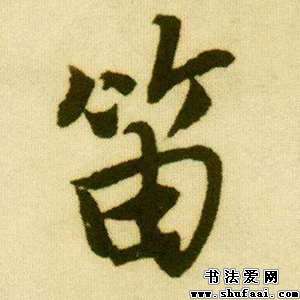 笛
书法爱网
www.shufaai.com